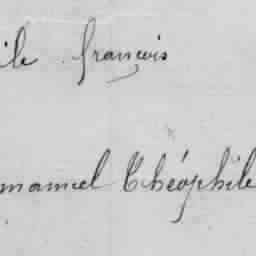 ile françois
manuel Théophile